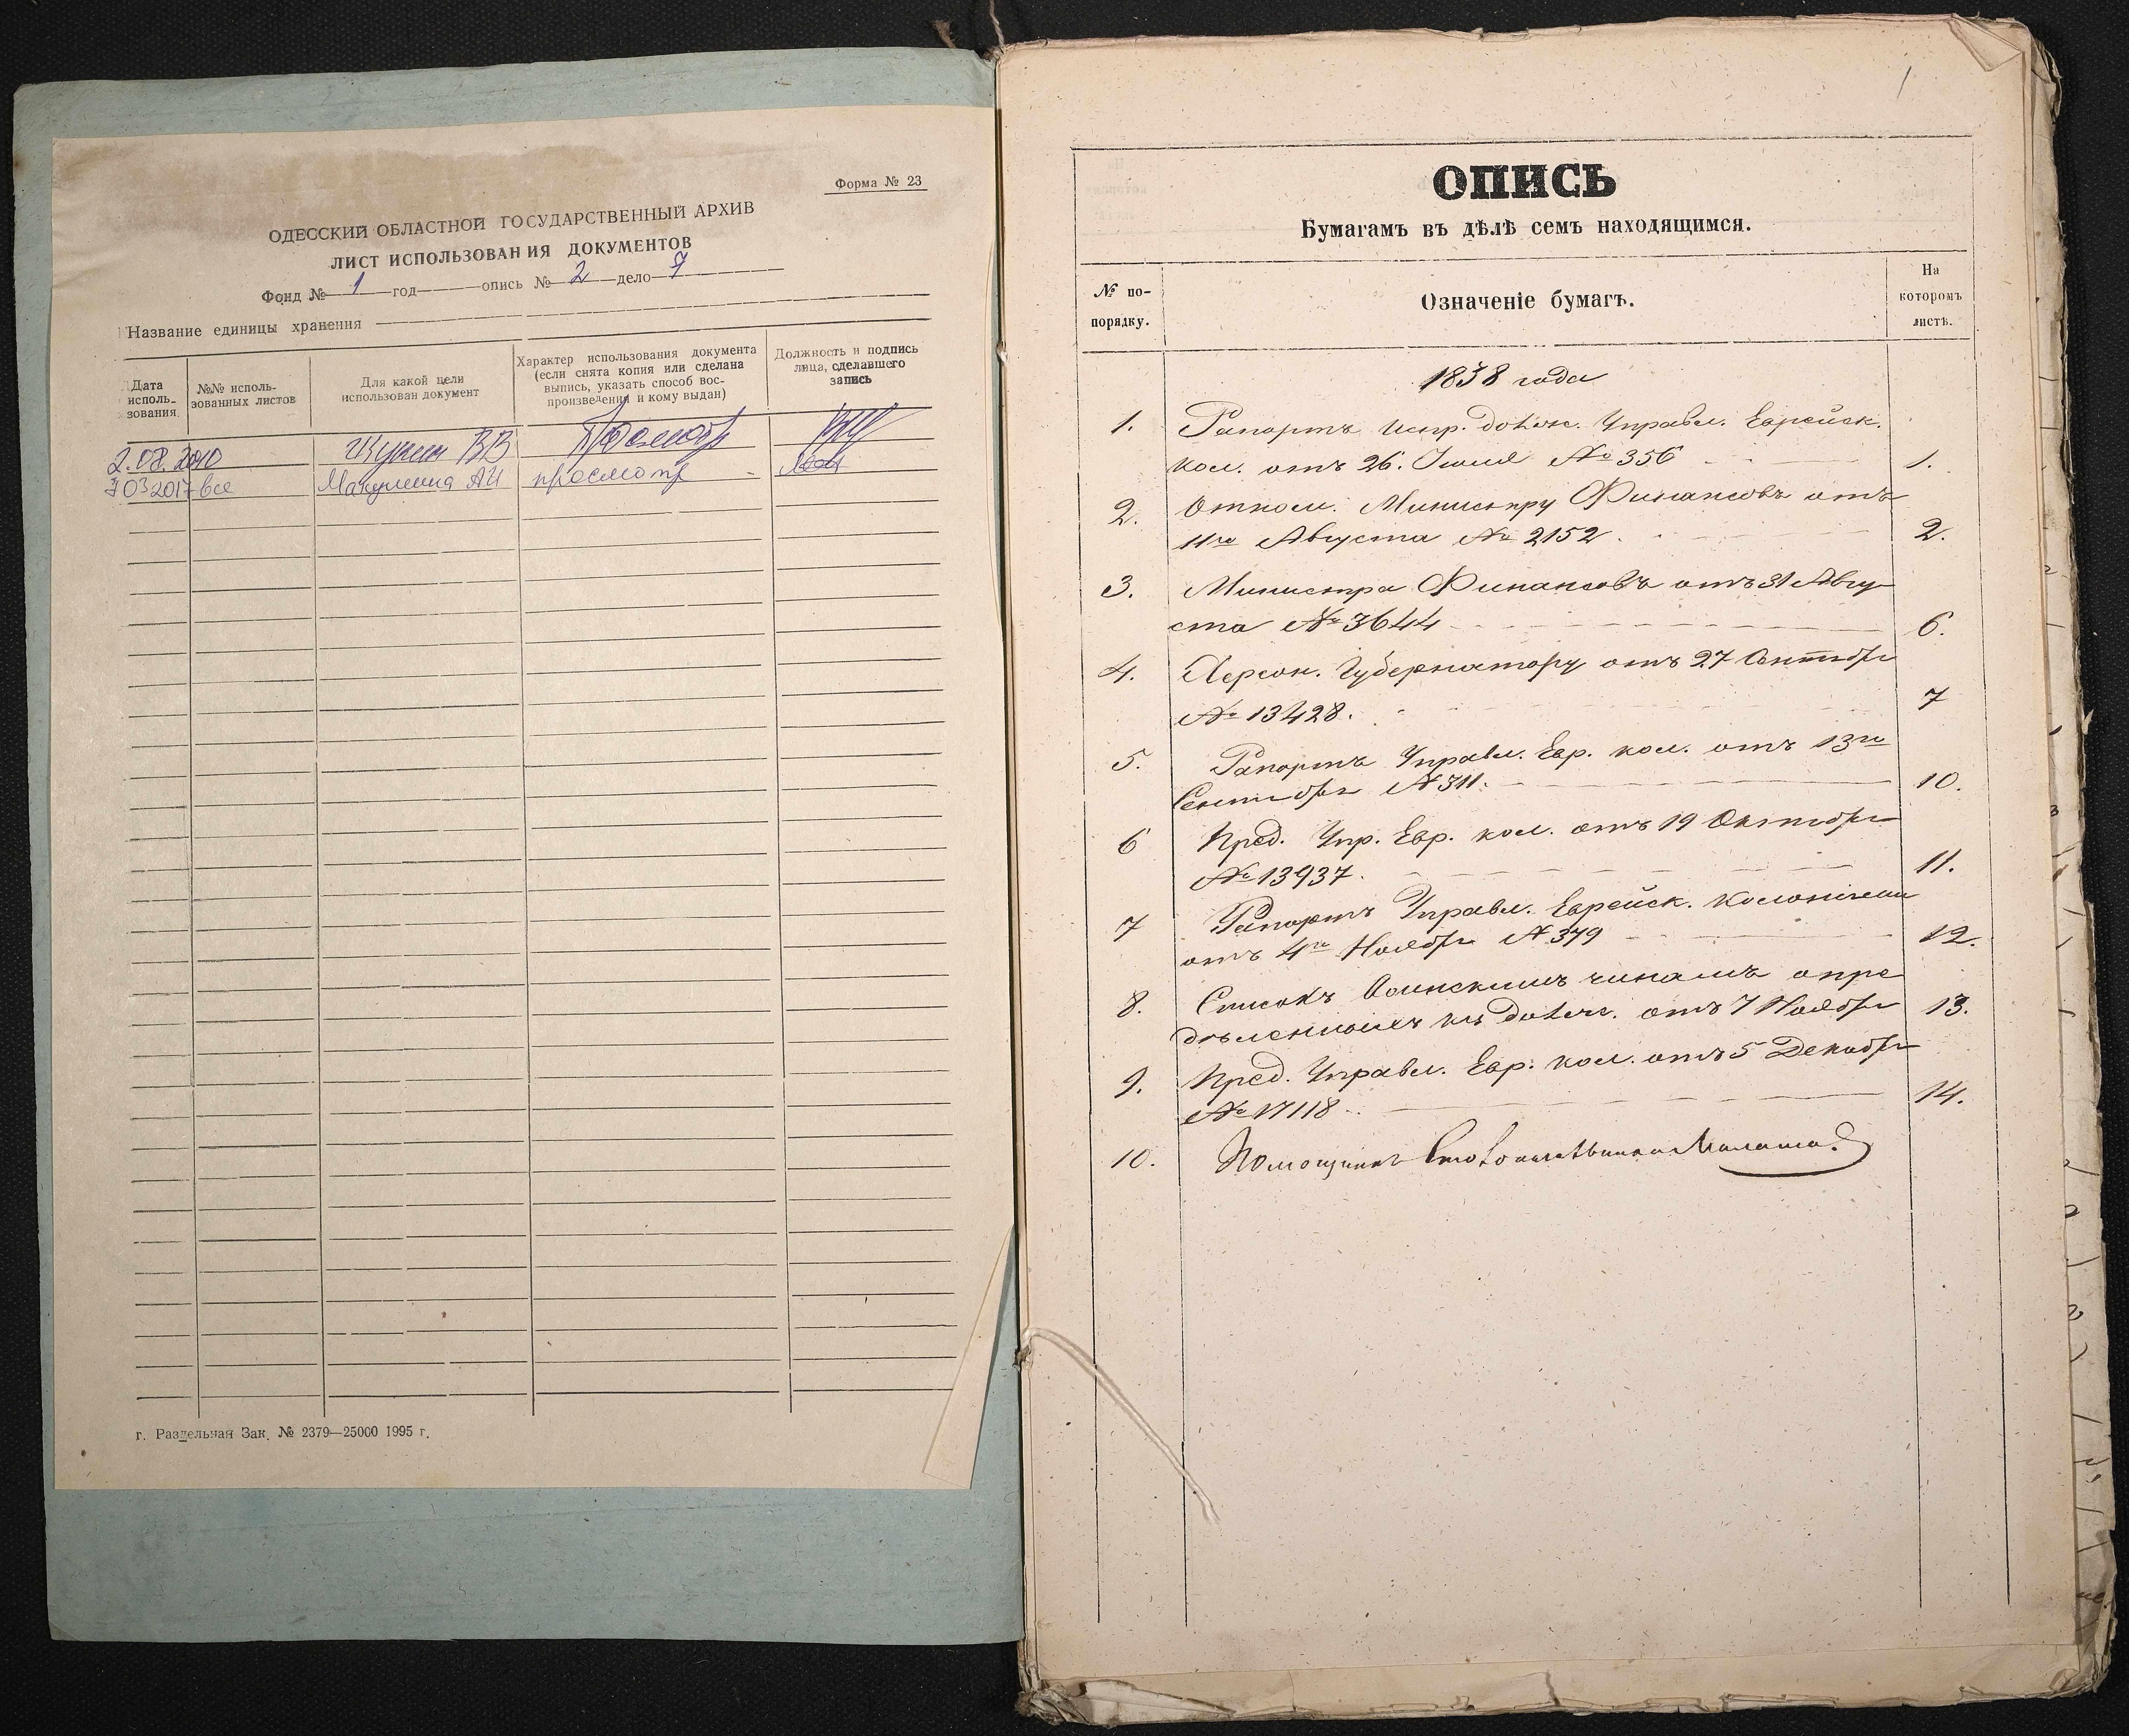 Форма № 23
ОДЕССКИЙ ОБЛАСТНОЙ ГОСУДАРСТВЕННЫЙ АРХИВ
ЛИСТ ИСПОЛЬЗОВАНИЯ ДОКУМЕНТОВ
Фонд № 1 год опись № 2 дело 7
Название единицы хранения
Дата исполь-зования
№№ исполь-зованных листов
Для какой цели использован документ
Характер использования документа (если снята копия или сделана выпись, указать способ вос-произведения и кому выдан)
Должность и подпись лица, сделавшего запись
2.08.2010 ВВ Просмотр
03 2017 все АИ просмотр
г. Раздельная Зак. № 2379—25000 1995 г.
1
ОПИСЬ
Бумагамъ въ дѣлѣ семъ находящимся.
№ по-порядку.
Означеніе бумагъ.
На которомъ листѣ.
1838 года
1. Рапортъ Испр. должн. Управл. Еврейск.
кол. отъ 26. Іюля № 356 1.
2. Министру Финансовъ отъ
11го Августа № 2152. 2.
3. Министра Финансовъ отъ 31 Авгу
ста № 3644 6.
4. Херсон. Губернатору отъ 27 Сентября
№ 13428. 7
5. Рапортъ Управл. Евр. кол. отъ 13го
Сентября № 311. 10.
6 Пред. Упр. Евр. кол. отъ 19 Октября
№ 13937. 11.
7 Рапортъ Управл. Еврейск. Колоніями
отъ 4го Ноября № 379 12.
8. Списокъ Воинскимъ чинамъ опре
дѣленнымъ къ должн. отъ 7 Ноября 13.
9. Пред. Управл. Евр. кол. отъ 5 Декабря
№ 17118 14.
10. Помощникъ Столоначальника